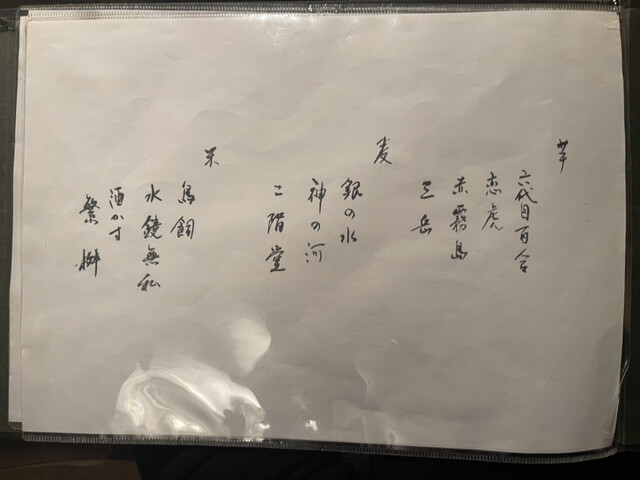 芋
六代目百合
恋虎
赤霧島
三岳
麦
銀の水
神の河
二階堂
米
鳥飼
水鏡無私
酒かす
繁桝